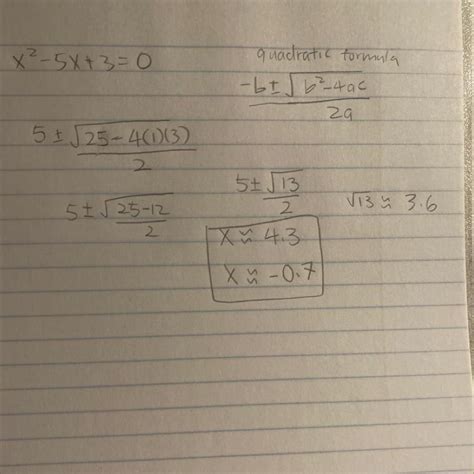 x² - 5x + 3 = 0
quadratic formula
-b ± √b² - 4ac
2a
5 ± √25 - 4(1)(3)
2
5 ± √25 - 12
2
5 ± √13
2
√13 ≈ 3.6
x ≈ 4.3
x ≈ -0.7